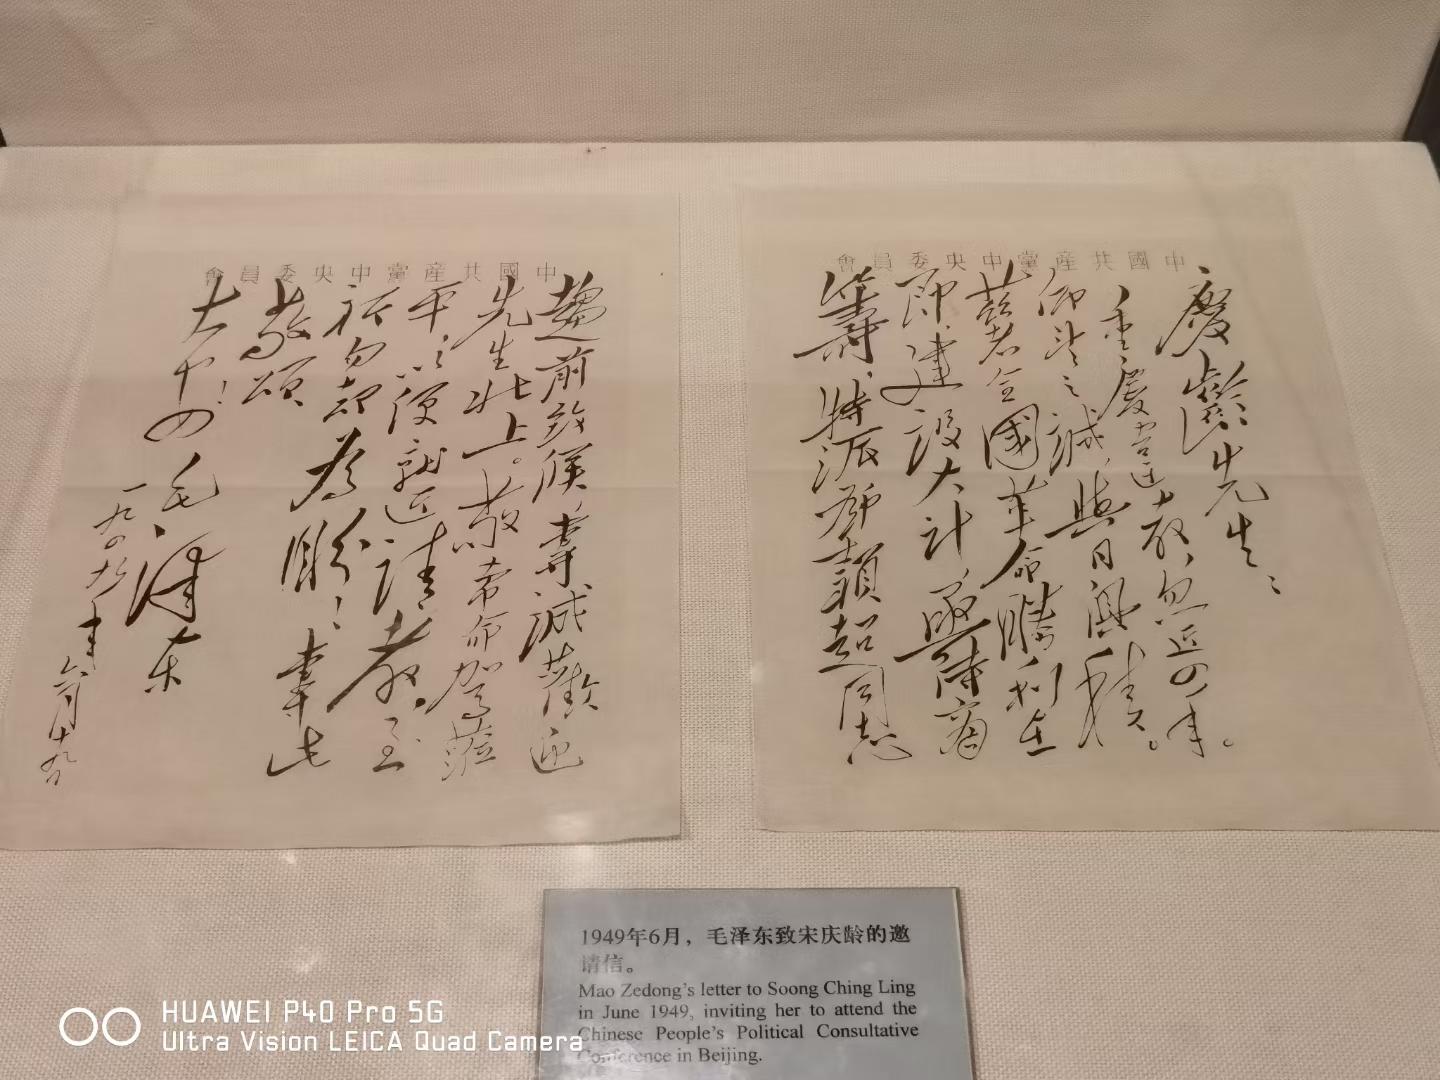 中國共產黨中央委員會
慶齡先生：
重慶違教，忽近四年。
仰望之誠，與日俱積。
茲者全國革命勝利在
即，建設大計，亟待商
籌，特派鄧穎超同志
中國共產黨中央委員會
趨前致候，專誠歡迎
先生北上。敬希命駕蒞
平，以便就近請教。至
祈勿却為盼！專此
敬頌
大安！
毛澤東
一九四九年六月十九日
1949年6月，毛泽东致宋庆龄的邀
请信。
Mao Zedong's letter to Soong Ching Ling
in June 1949, inviting her to attend the
Chinese People's Political Consultative
Conference in Beijing.
HUAWEI P40 Pro 5G
Ultra Vision LEICA Quad Camera